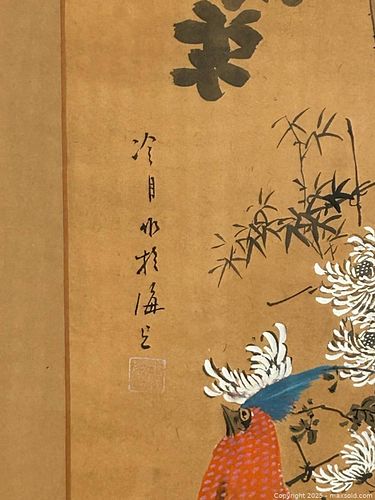 冷月作於海上
Copyright 2025 - maxsold.com